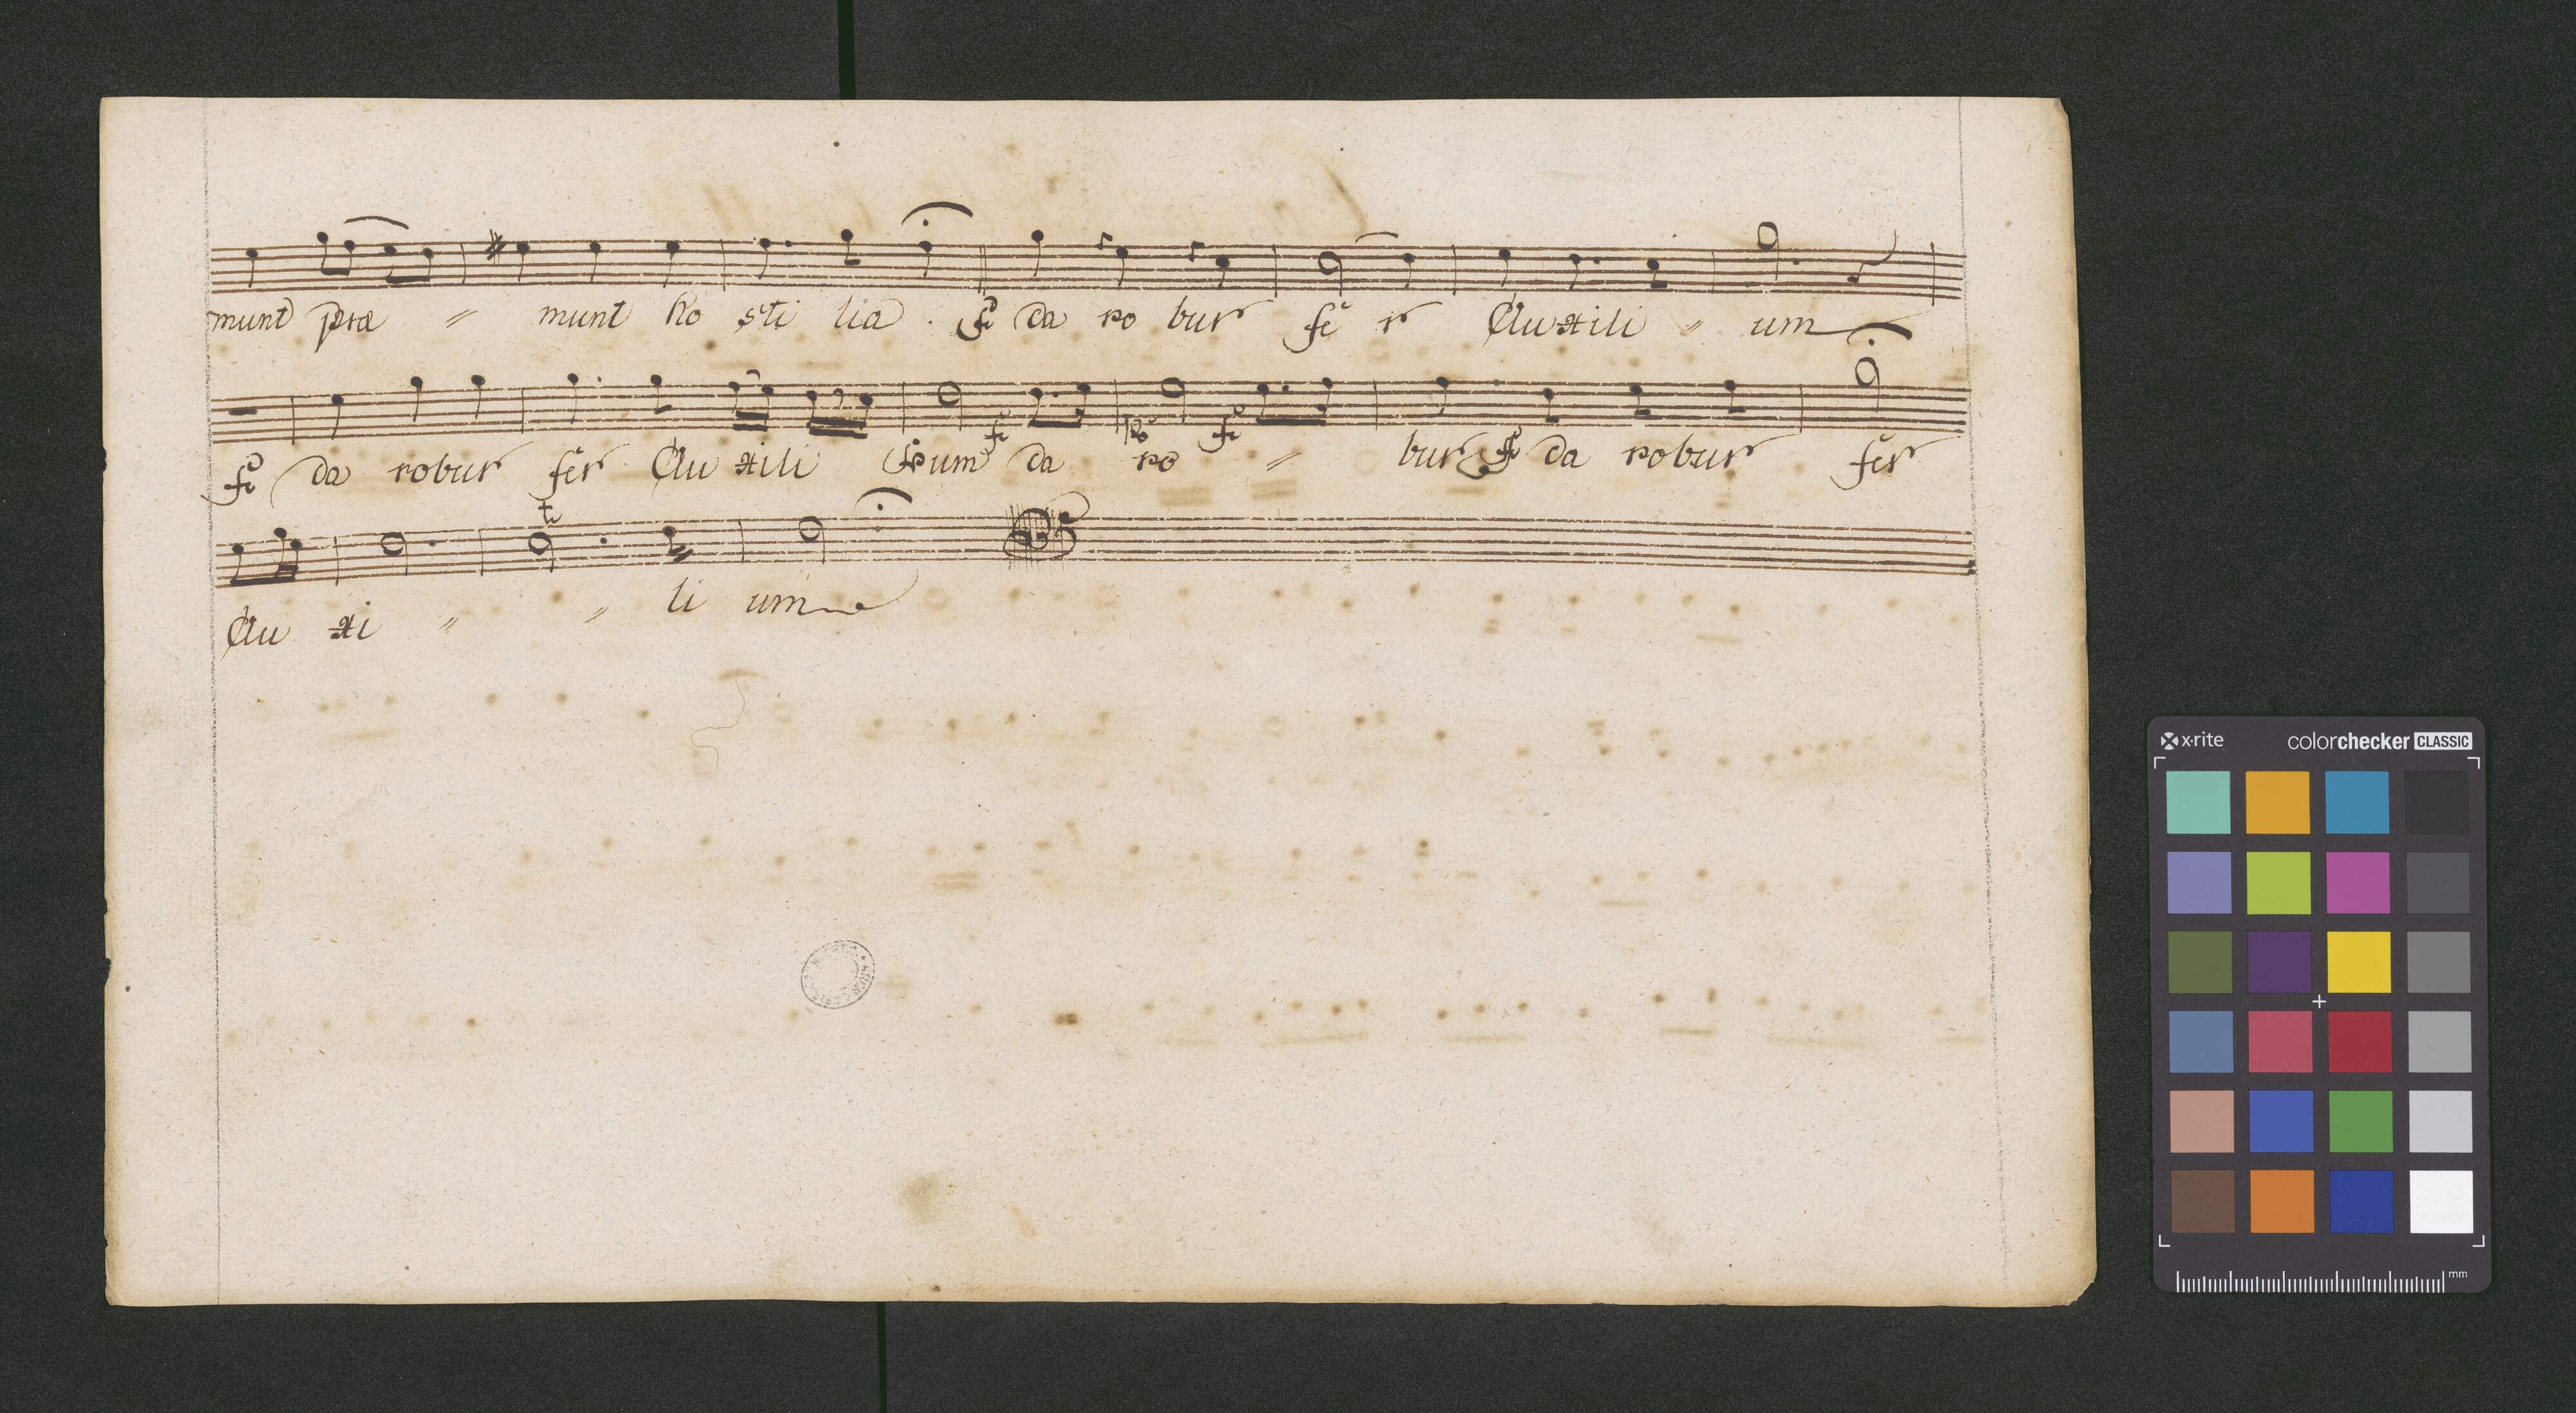 munt præ = munt ho sti lia. fe da ro bur fe r Auxili = um
fe da robur fer Auxili po um fe da po ro fe = bur fe da robur fer
t
Au xi = = li um
x-rite colorchecker CLASSIC
mm